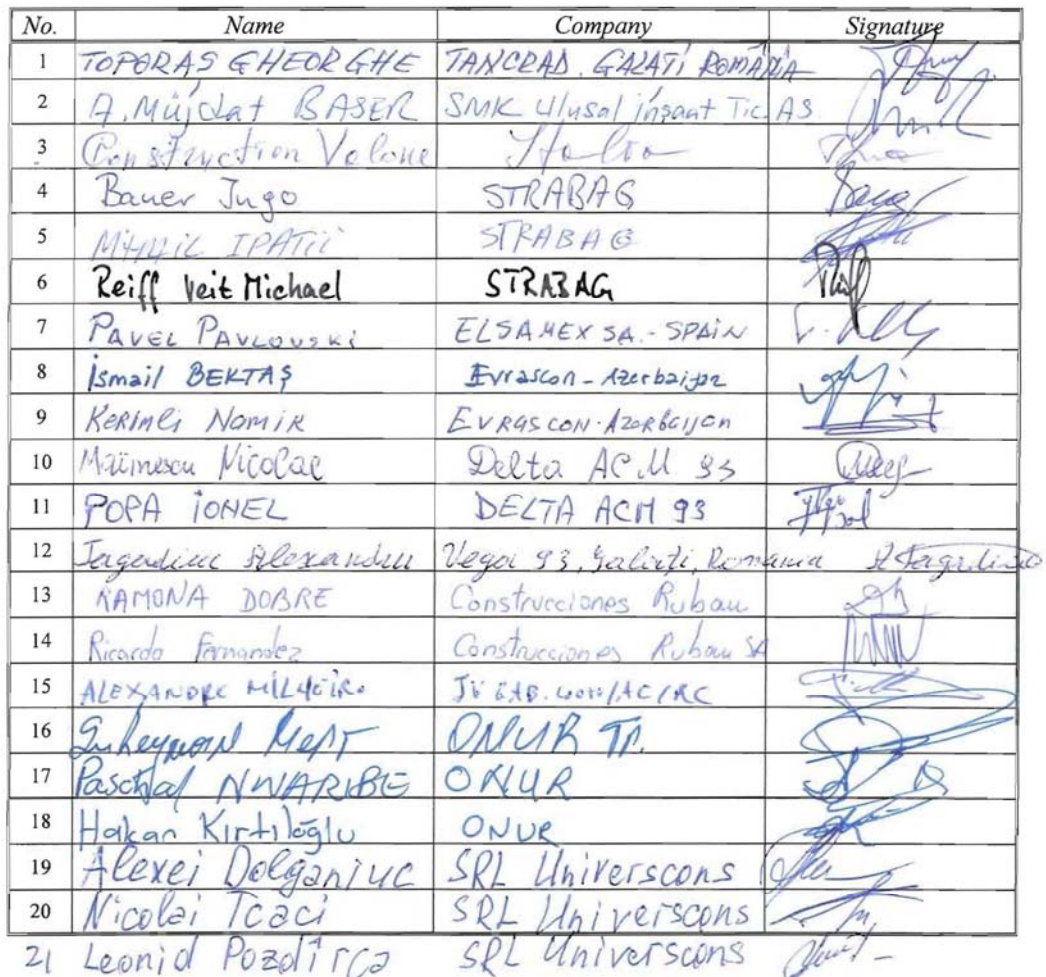 No. Name Company Signature
1 TOPORAȘ GHEORGHE TANCRAD. GALAȚI ROMÂNIA
2 A. Müjdat BASER SMK Ulusal inşaat Tic. AS
3 Construction Italia
4 Bauer Ingo STRABAG
5 MIHAIL IPATII STRABAG
6 Reiff Veit Michael STRABAG
7 PAVEL PAVLOVSKI ELSAMEX SA. - SPAIN
8 İsmail BEKTAŞ Evrascon - Azerbaijan
9 KERIMLI NAMIK EVRASCON - AZERBAIJAN
10 Nicolae Delta ACM 93
11 POPA IONEL DELTA ACM 93
12 Alexandru Vega 93, Galați, Romania
13 RAMONA DOBRE Construcciones Rubau
14 Ricardo Fernandez Construcciones Rubau SA
15 ALEXANDRE JV
16 ONUR
17 Paschal NWARIBE ONUR
18 Hakan Kırtıloğlu ONUR
19 Alexei Dolganiuc SRL Universcons
20 Nicolai Tcaci SRL Universcons
21 Leonid Pozdîrca SRL Universcons